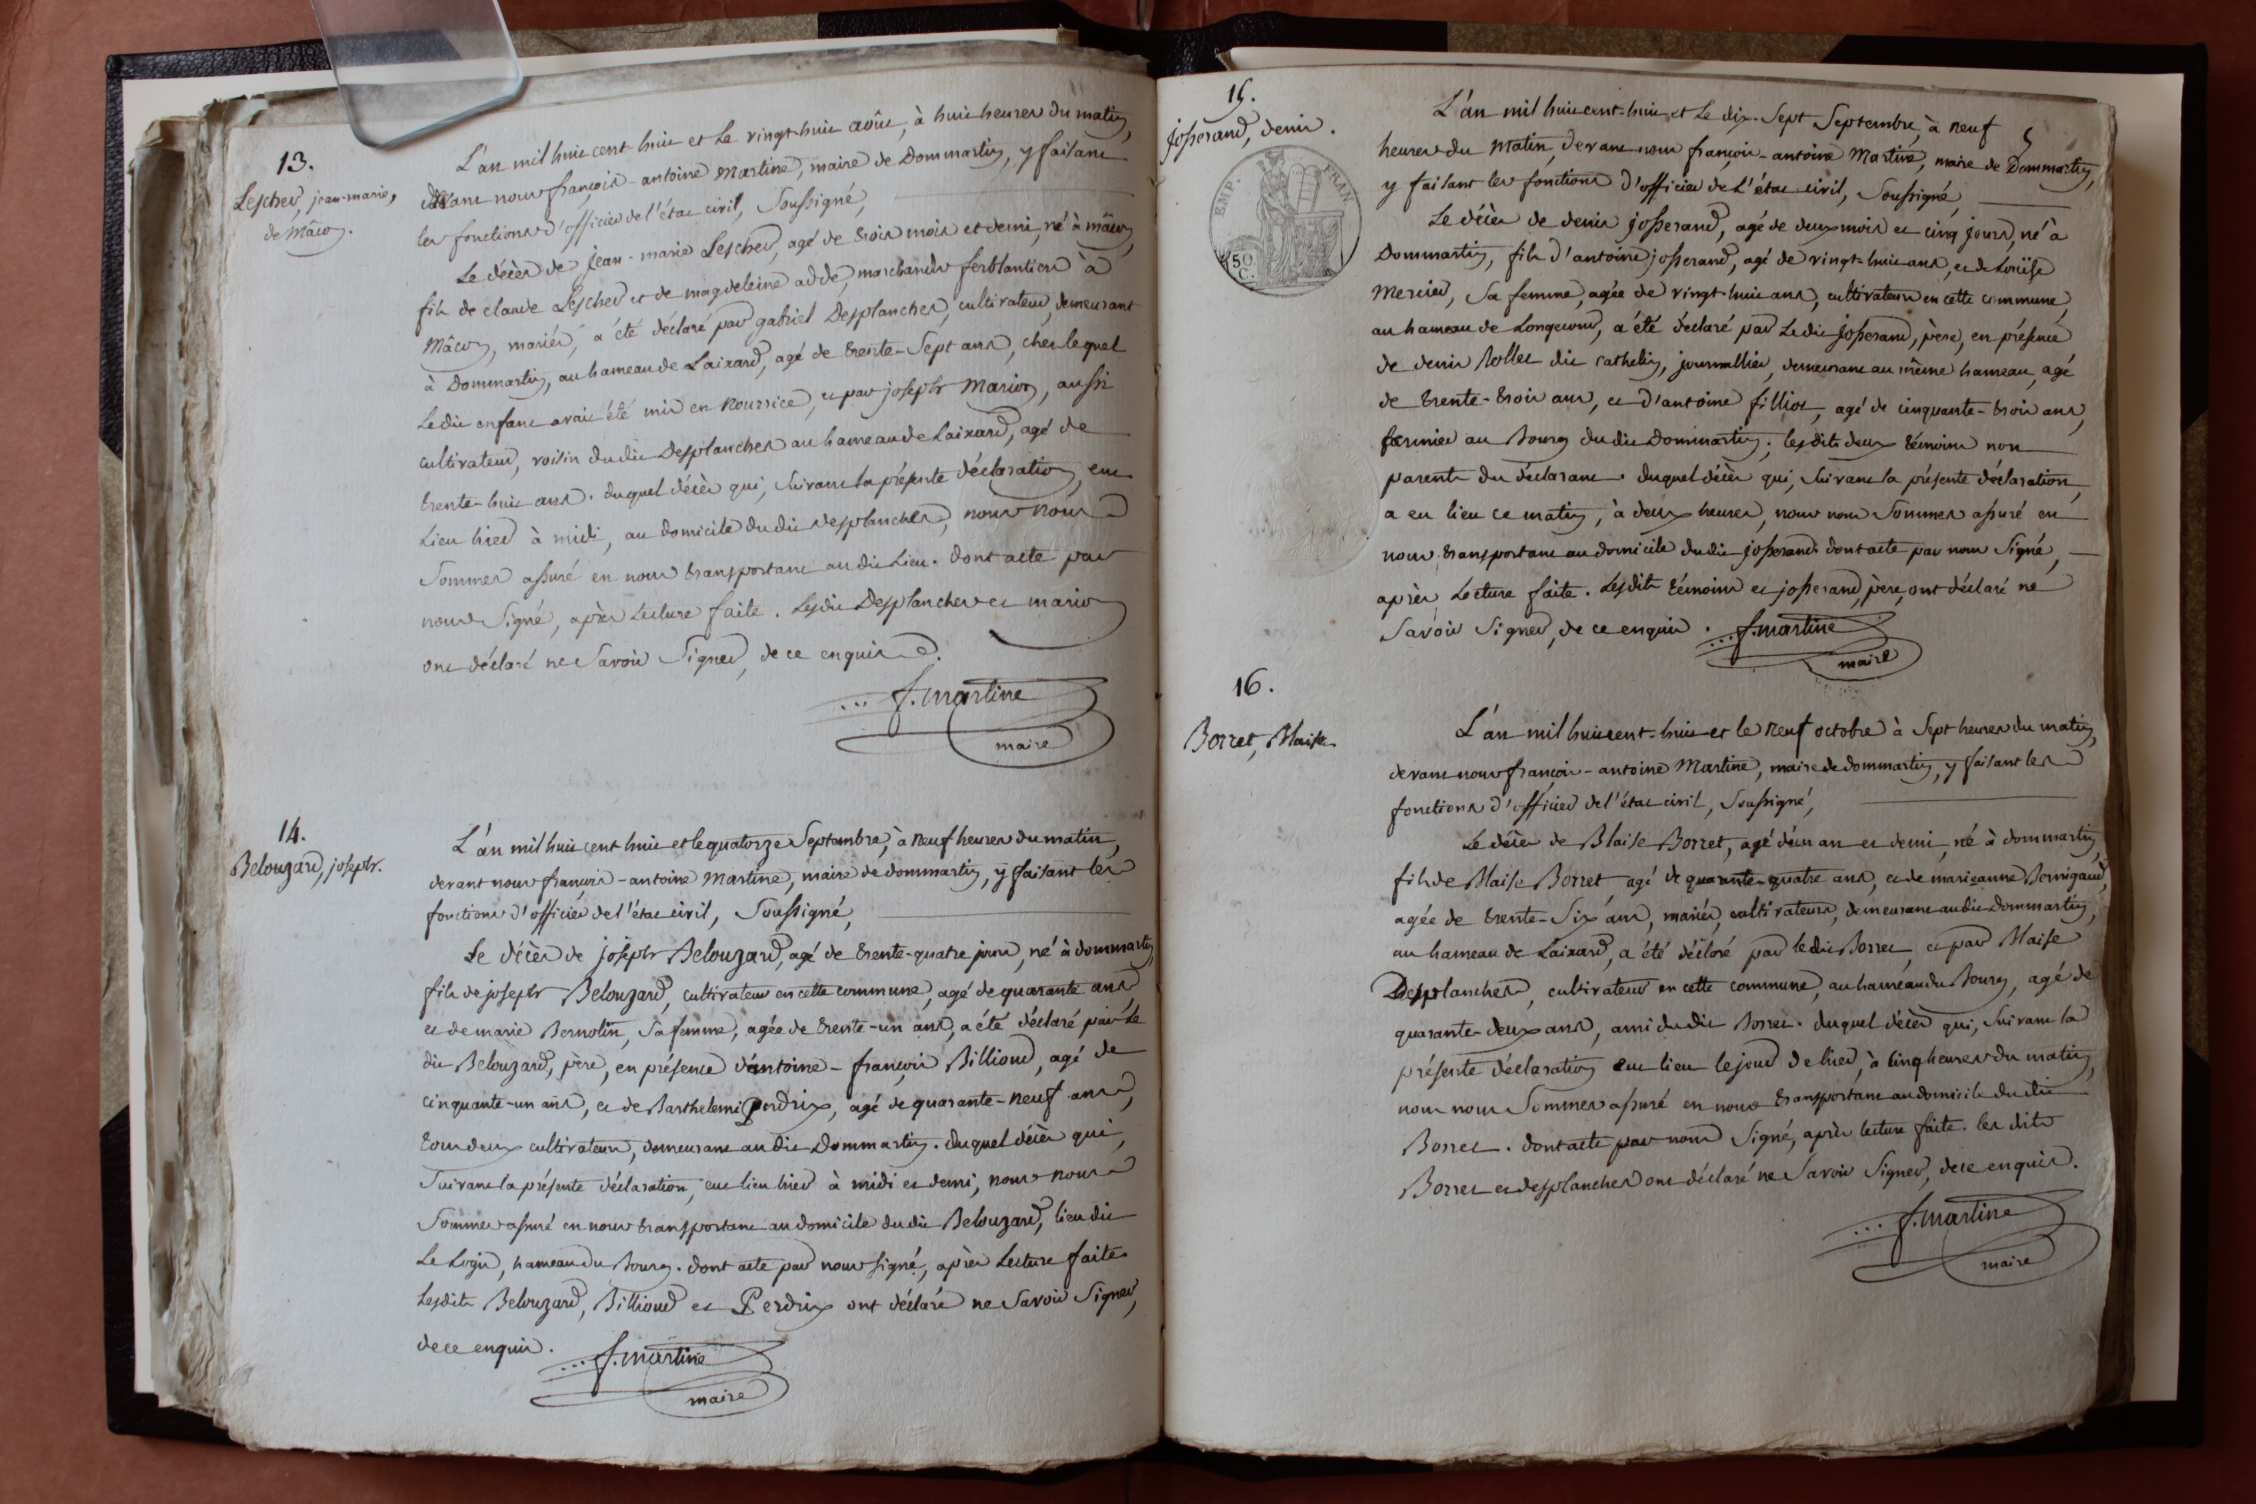 13.
Lescher, jean-marie,
de Mâcon.
L'an mil huit cent huit et le vingt-huit août, à huit heures du matin,
devant nous françois-antoine Martine, maire de Dommartin, y faisant
les fonctions d'officier de l'état civil, Soussigné,
Le décès de Jean-marie Lescher, agé de trois mois et demi, né à mâcon,
fils de claude Lescher et de magdeleine adde, marchands ferblantiers à
Mâcon, mariés, a été déclaré par gabriel Desplanches, cultivateur, demeurant
à Dommartin, au hameau de Laixard, agé de trente-Sept ans, chez lequel
Ledit enfant avait été mis en Nourrice, et par joseph Marion, aussi
cultivateur, voisin dudit Desplanches au hameau de Laixard, agé de
trente-huit ans. duquel décès qui, Suivant la présente déclaration, eut
Lieu hier à midi, au domicile dudit desplanches, nous nous
Sommes assuré en nous transportant audit Lieu. dont acte par
nous Signé, après Lecture faite. Lesdits Desplanches et marion
ont déclaré ne Savoir Signer, de ce enquis.
f. martine
maire
14.
Belouzard, joseph.
L'an mil huit cent huit et le quatorze Septembre, à Neuf heures du matin,
devant nous françois-antoine Martine, maire de dommartin, y faisant les
fonctions d'officier de l'état civil, Soussigné,
Le décès de joseph Belouzard, agé de trente-quatre jours, né à dommartin,
fils de joseph Belouzard, cultivateur en cette commune, agé de quarante ans
et de marie Bernolin, Sa femme, agée de trente-un ans, a été déclaré par Le
dit Belouzard, père, en présence d'antoine-françois Billioud, agé de
cinquante-un ans, et de Barthelemi Perdrix, agé de quarante-neuf ans,
tous deux cultivateurs, demeurant audit Dommartin. duquel décès qui,
Suivant la présente déclaration, eut lieu hier à midi et demi, nous nous
Sommes assuré en nous transportant au domicile dudit Belouzard, lieu dit
Le Logis, hameau du Bourg. dont acte par nous signé, après Lecture faite
Lesdits Belouzard, Billioud et Perdrix ont déclaré ne Savoir Signer,
de ce enquis.
f. martine
maire
15.
Josserand, denis.
EMP. FRAN
50
C.
5
L'an mil huit cent-huit et Le dix-Sept Septembre, à neuf
heures du Matin, devant nous françois-antoine Martine, maire de Dommartin,
y faisant les fonctions d'officier de L'état civil, Soussigné,
Le décès de denis josserand, agé de deux mois et cinq jours, né à
Dommartin, fils d'antoine josserand, agé de vingt-huit ans, et de Louise
Mercier, Sa femme, agée de vingt-huit ans, cultivateurs en cette commune,
au hameau de Longecour, a été déclaré par Ledit josserand, père, en présence
de denis Rollet dit cathelin, journallier, demeurant au même hameau, agé
de trente-trois ans, et d'antoine fillion, agé de cinquante-trois ans,
fermier au Bourg dudit Dommartin; lesdits deux témoins non
parents du déclarant. duquel décès qui, Suivant la présente déclaration,
a eu lieu ce matin, à deux heures, nous nous Sommes assuré en
nous transportant au domicile dudit josserand. dont acte par nous Signé,
après Lecture faite. Lesdits témoins et josserand, père, ont déclaré ne
Savoir Signer, de ce enquis.
f. martine
maire
16.
Borret, Blaise
L'an mil huit cent-huit et le Neuf octobre à Sept heures du matin,
devant nous françois-antoine Martine, maire de dommartin, y faisant les
fonctions d'officier de l'état civil, Soussigné,
Le décès de Blaise Borret, agé d'un an et demi, né à dommartin,
fils de Blaise Borret agé de quarante-quatre ans, et de marieanne Bernigaud,
agée de trente-Six ans, mariés, cultivateurs, demeurant audit Dommartin,
au hameau de Laixard, a été déclaré par ledit Borret, et par Blaise
Desplanches, cultivateur en cette commune, au hameau du Bourg, agé de
quarante-deux ans, ami dudit Borret. duquel décès qui, Suivant la
présente déclaration eut lieu le jour de hier, à cinq heures du matin,
nous nous Sommes assuré en nous transportant au domicile dudit
Borret. dont acte par nous Signé, après lecture faite. les dits
Borret et desplanches ont déclaré ne Savoir Signer, de ce enquis.
f. martine
maire